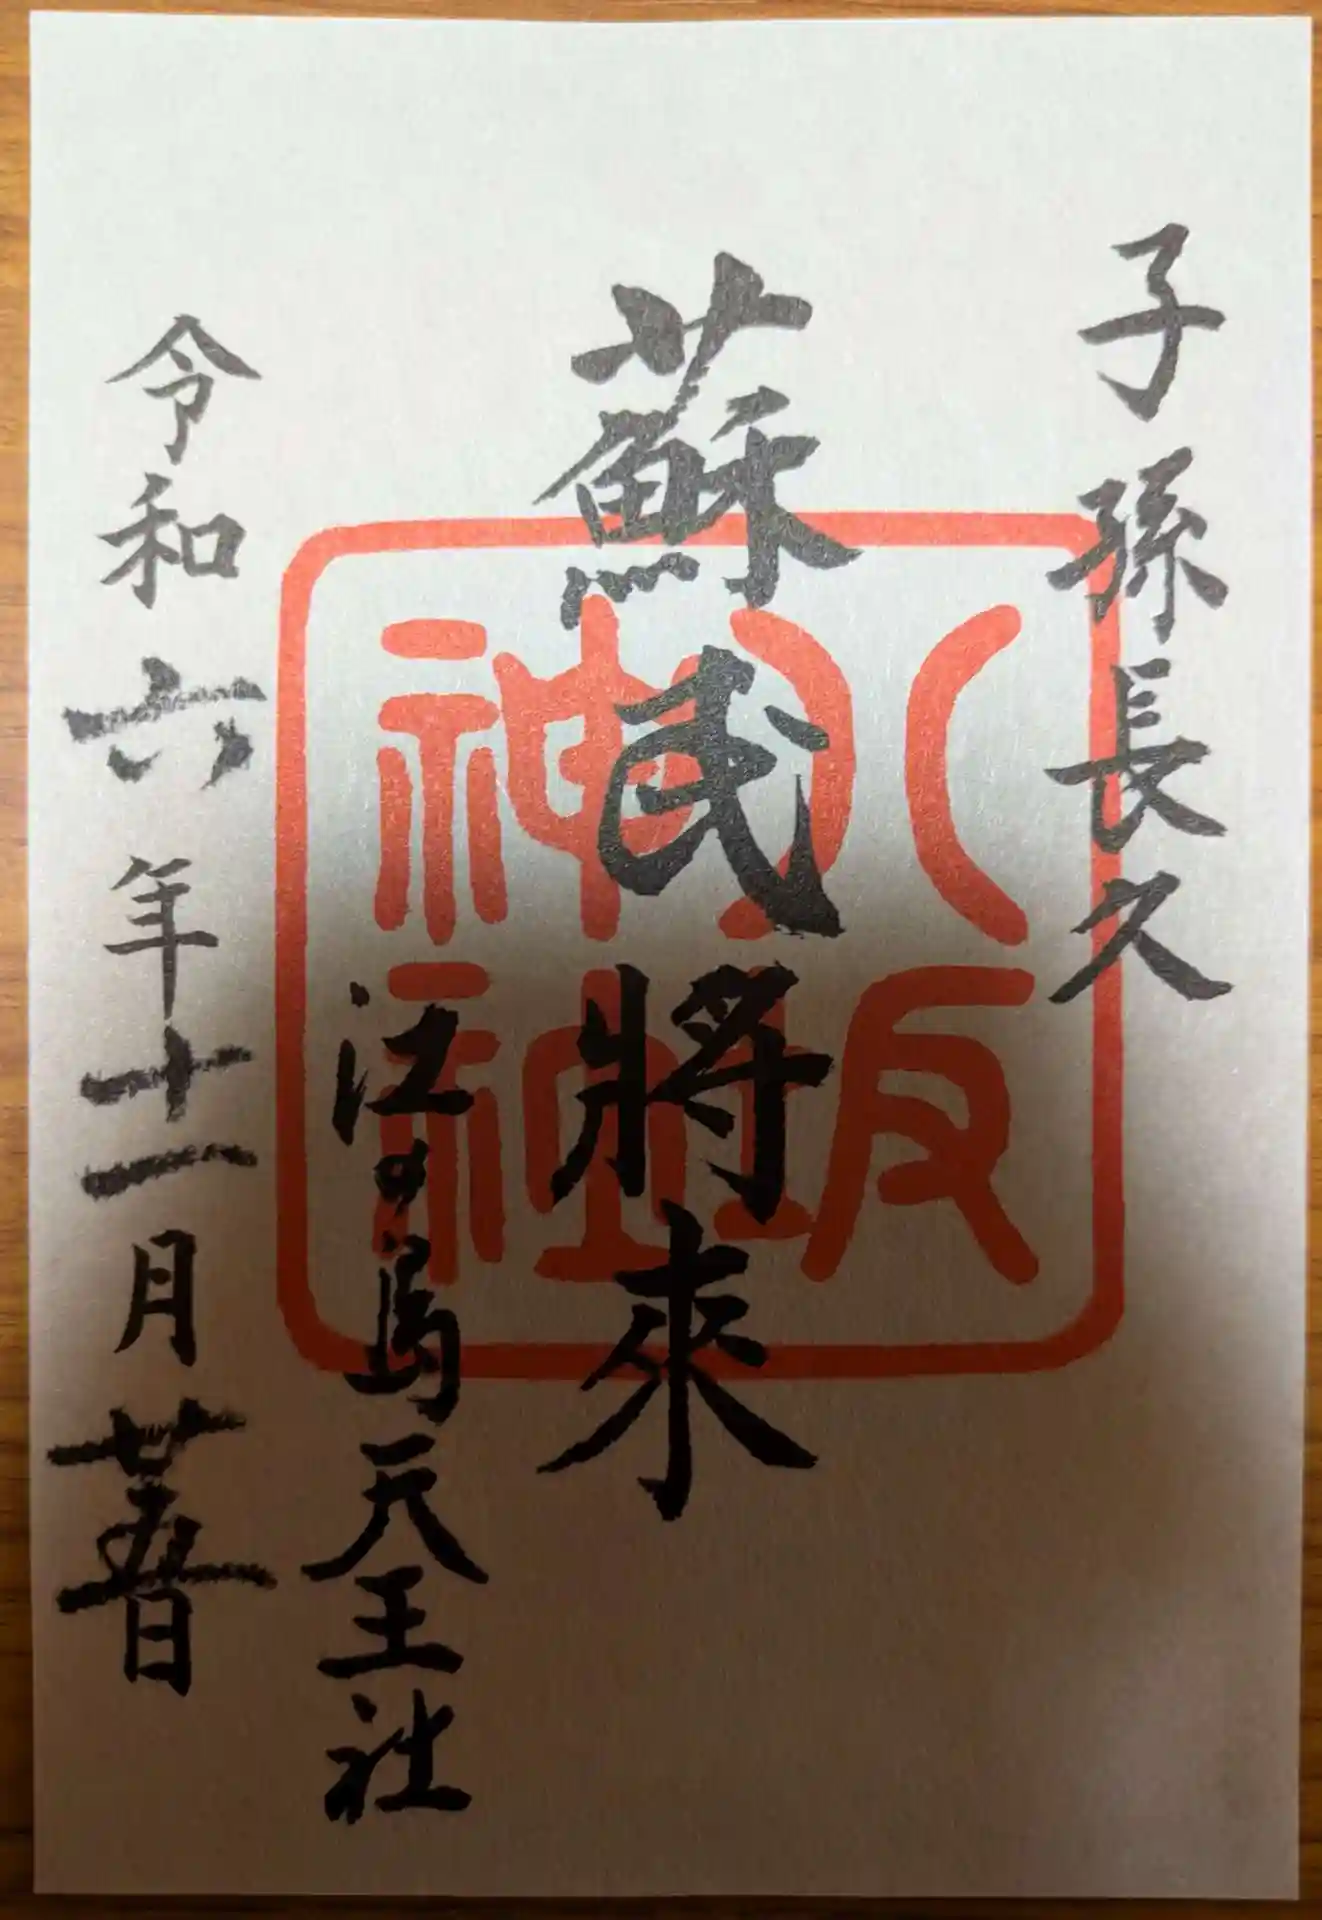 子孫長久
蘇民將來
江の島天王社
令和六年十一月廿五日
八坂
神社